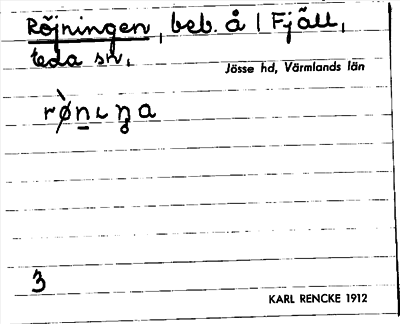 Röjningen, beb. å 1 Fjäll,
Eda sn,
Jösse hd, Värmlands län
3
KARL RENCKE 1912